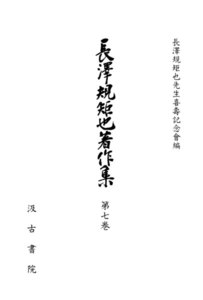 長澤規矩也先生喜壽記念會編
長澤規矩也著作集
第七卷
汲古書院